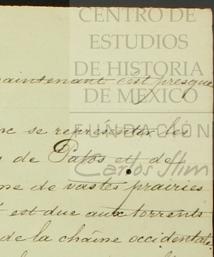 CENTRO DE
ESTUDIOS
DE HISTORIA
maintenant est presque
DE MÉXICO
se représenter les
FUNDACIÓN
de Patos et de
Carlos Slim
de vastes prairies
est due aux torrents
de la chaîne occidentale